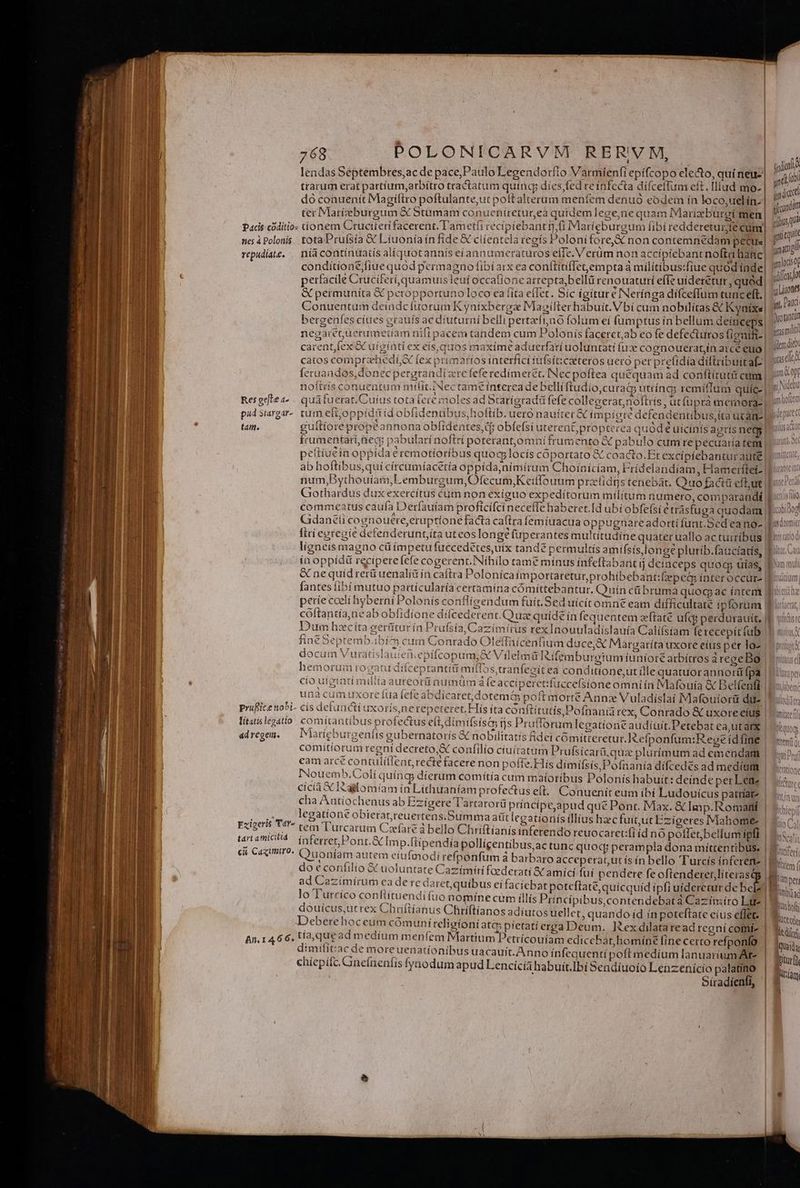 768 POLONICARVM RERVM,
lendas Septembres, ac de pace, Paulo Legendorfio Varmiensi episcopo electo, qui neu-
trarum erat partium, arbitro tractatum quinq; dies, sed re infecta discessum est. Illud mo-
do conuenit Magistro postulante, ut post alterum mensem denuo eodem in loco, uel in-
ter Mariæburgum & Stumam conueniretur, ea quidem lege, ne quam Mariæburgi men
Pacis cōditio- tionem Cruciferi facerent. Tametsi recipiebant ij, si Mariæburgum sibi redderetur, se cum
nes à Polonis tota Prussia & Liuonia in fide & clientela regis Poloni fore, & non contemnēdam pecu-
repudiatæ. niā continuatis aliquot annis ei annumeraturos esse. Verùm non accipiebant nostri hanc
conditionē, siue quòd permagno sibi arx ea constitisset, empta à militibus: siue quòd inde
perfacile Cruciferi, quamuis leui occasione arrepta, bellū renouaturi esse uiderētur, quòd
& permunita & peropportuno loco ea sita esset. Sic igitur è Neringa discessum tunc est.
Conuentum deinde suorum Kynixbergæ Magister habuit. Vbi cum nobilitas & Kynix-
bergenses ciues grauis ac diuturni belli pertæsi, nō solum ei sumptus in bellum deinceps
negarēt, uerumetiam nisi pacem tandem cum Polonis faceret, ab eo se defecturos signifi-
carent, sex & uiginti ex eis, quos maximè aduersari uoluntati suæ cognouerat, in arce euo
catos compræhēdi, & sex primarios interfici iussit: cæteros uerò per præsidia distribuit as-
seruandos, donec pergrandi ære sese redimerēt. Nec postea quēquam ad constitutū cum
nostris conuentum misit. Nec tamē interea de belli studio, curaq; utrinq; remissum quic-
Res gestæ a- quā fuerat. Cuius tota ferè moles ad Starigradū sese collegerat, nostris, ut suprà memora-
pud Stargar- tum est, oppidū id obsidentibus, hostib. uerò nauiter & impigrè defendentibus, ita ut an-
tam. gustiore propè annona obsidentes, q̃ obsessi uterent, propterea quòd è uicinis agris neq;
frumentari, neq; pabulari nostri poterant, omni frumento & pabulo cum re pecuaria tem
pestiuè in oppida è remotioribus quoq; locis cōportato & coacto. Et excipiebantur autē
ab hostibus, qui circumiacētia oppida, nimirum Choiniciam, Fridelandiam, Hamerstei-
num, Bythouiam, Lemburgum, Osecum, Keissouum præsidijs tenebāt. Quo factū est, ut
Gothardus dux exercitus cum non exiguo expeditorum militum numero, comparandi
commeatus causa Derssauiam proficisci necesse haberet. Id ubi obsessi è trāsfuga quodam
Gidaneii cognouēre, eruptione facta castra semiuacua oppugnare adorti sunt. Sed ea no-
stri egregiè defenderunt, ita ut eos longè superantes multitudine quater uallo ac turribus
ligneis magno cū impetu succedētes, uix tandē permultis amissis, longè plurib. sauciatis,
in oppidū recipere sese cogerent. Nihilo tamē minus infestabant ij deinceps quoq; uias,
& ne quid rerū uenaliū in castra Polonica importaretur, prohibebant: sæpeq; inter occur-
santes sibi mutuo particularia certamina cōmittebantur. Quin cū bruma quoq; ac intem
perie cœli hyberni Polonis confligendum fuit. Sed uicit omnē eam difficultatē ipsorum
cōstantia, ne ab obsidione discederent. Quæ quidē in sequentem æstatē usq; perdurauit.
Dum hæc ita gerūtur in Prussia, Cazimirus rex Inouuladislauia Calissiam se recepit sub
finē Septemb. ibiq; cum Conrado Olessnicensium duce, & Margarita uxore eius per lo-
docum Vuratislauien. episcopum, & Vilelmū Risemburgium iuniorē arbitros à rege Bo
hemorum rogatu disceptantiū missos, transegit ea conditione, ut ille quatuor annorū spa
cio uiginti millia aureorū numūm à se acciperet: successione omni in Masouia & Belsensi
unà cum uxore sua sese abdicaret, dotemq; post mortē Annæ Vuladislai Masouiorū du-
Prussicæ nobi- cis defuncti uxoris, ne repeteret. His ita constitutis, Posnaniā rex, Conrado & uxore eius
litatis legatio comitantibus profectus est, dimissisq; ijs Prussorum legationē audiuit. Petebat ea, ut arx
ad regem. Mariæburgensis gubernatoris & nobilitatis fidei cōmitteretur. Responsum: Regē id sine
comitiorum regni decreto, & consilio ciuitatum Prussicarū, quæ plurimum ad emendam
eam arcē contulissent, rectè facere non posse. His dimissis, Posnania discedēs ad medium
Nouemb. Coli quinq; dierum comitia cum maioribus Polonis habuit: deinde per Len-
ciciā & Radomiam in Lithuaniam profectus est. Conuenit eum ibi Ludouicus patriar-
cha Antiochenus ab Ezigere Tartarorū principe, apud quē Pont. Max. & Imp. Romani
legatione obierat, reuertens. Summa aūt legationis illius hæc fuit, ut Ezigeres Mahome-
Ezigeris Tar- tem Turcarum Cæsarē à bello Christianis inferendo reuocaret: si id nō posset, bellum ipsi
tari amicitia inferret, Pont. & Imp. stipendia pollicentibus, ac tunc quoq; perampla dona mittentibus.
cū Cazimiro. Quoniam autem eiusmodi responsum à barbaro acceperat, ut is in bello Turcis inferen-
do è consilio & uoluntate Cazimiri fœderati & amici sui pendere se ostenderet, literasq;
ad Cazimirum ea de re daret, quibus ei faciebat potestatē, quicquid ipsi uideretur de bel-
lo Turcico constituendi suo nomine cum illis Principibus, contendebat à Cazimiro Lu-
douicus, ut rex Christianus Christianos adiutos uellet, quando id in potestate eius esset.
Debere hoc eum cōmuni religioni atq; pietati erga Deum. Rex dilata re ad regni comi-
An. 1466. tia, quæ ad medium mensem Martium Petricouiam edicebat, hominē sine certo responso
dimisit: ac de more uenationibus uacauit. Anno insequenti post medium Ianuarium Ar-
chiepisc. Gnesnensis synodum apud Lenciciā habuit. Ibi Sendiuoio Lenzenicio palatino
Siradiensi,